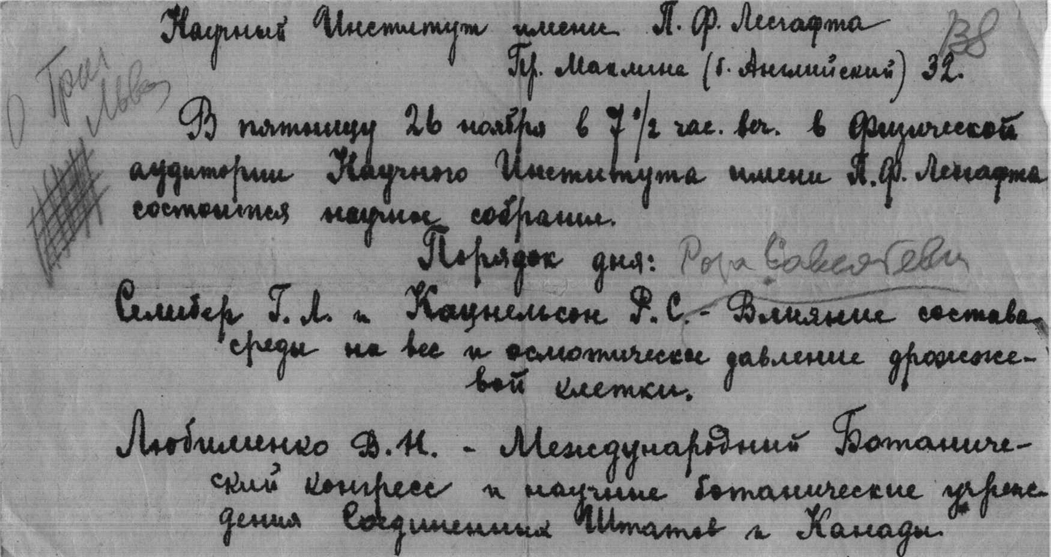 Научный Институт имени П. Ф. Лесгафта
138
Пр. Маклина (б. Английский) 32.
В пятницу 26 ноября в 7 1/2 час. веч. в Физической
аудитории Научного Института имени П. Ф. Лесгафта
состоится научное собрание.
Порядок дня:
Роза
Селибер Г. Л. и Кацнельсон Р. С. - Влияние состава
среды на вес и осмотическое давление дрожже-
вой клетки.
Любименко В. Н. - Международный Ботаниче-
ский конгресс и научные ботанические учреж-
дения Соединенных Штатов и Канады